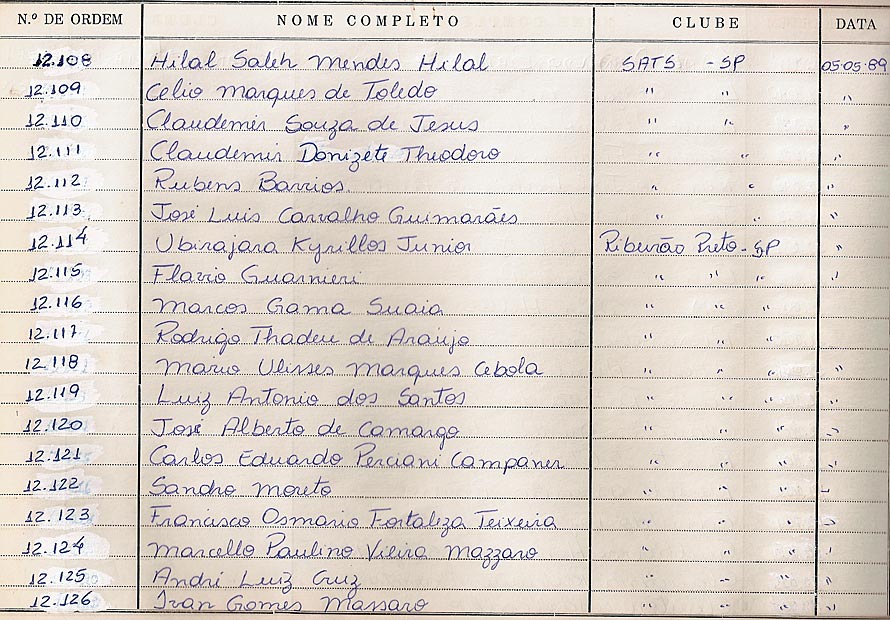 N.º DE ORDEM NOME COMPLETO CLUBE DATA
12.108 Hilal Saleh Mendes Hilal SATS - SP 05.05.89
12.109 Celio Marques de Toledo " " "
12.110 Claudemir Souza de Jesus " " "
12.111 Claudemir Donizete Theodoro " " "
12.112 Rubens Barrios. " " "
12.113 José Luis Carvalho Guimarães " " "
12.114 Ubirajara Kyrillos Junior Ribeirão Preto - SP "
12.115 Flavio Guarnieri " " " "
12.116 Marcos Gama Suaia " " " "
12.117 Rodrigo Thadeu de Araújo " " " "
12.118 Mario Ulisses Marques Cebola " " " "
12.119 Luiz Antonio dos Santos " " " "
12.120 José Alberto de Camargo " " " "
12.121 Carlos Eduardo Perciani Campaner " " " "
12.122 Sandro Moreto " " " "
12.123 Francisco Osmario Fortaleza Teixeira " " " "
12.124 Marcello Paulino Vieira Mazzaro " " " "
12.125 André Luiz Cruz " " " "
12.126 Ivan Gomes Massaro " " " "